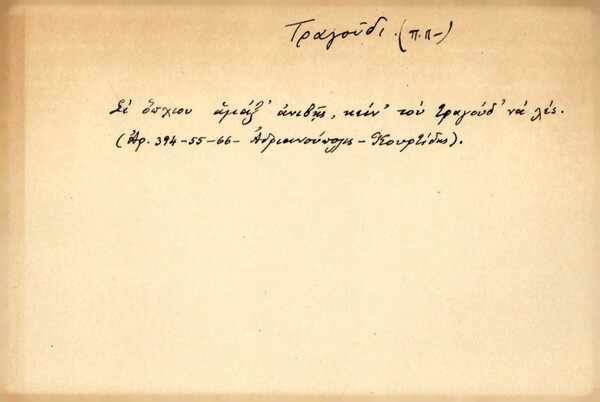 Τραγοῦδι. (π.π-)
Σὲ ὅπχιου ἁμάξ' ἀνεβῇς, κεῖν' τοὺ τραγούδ' νὰ λές.
(Ἀρ. 394-55-66- Ἀδριανούπολις - Κουρτίδης).